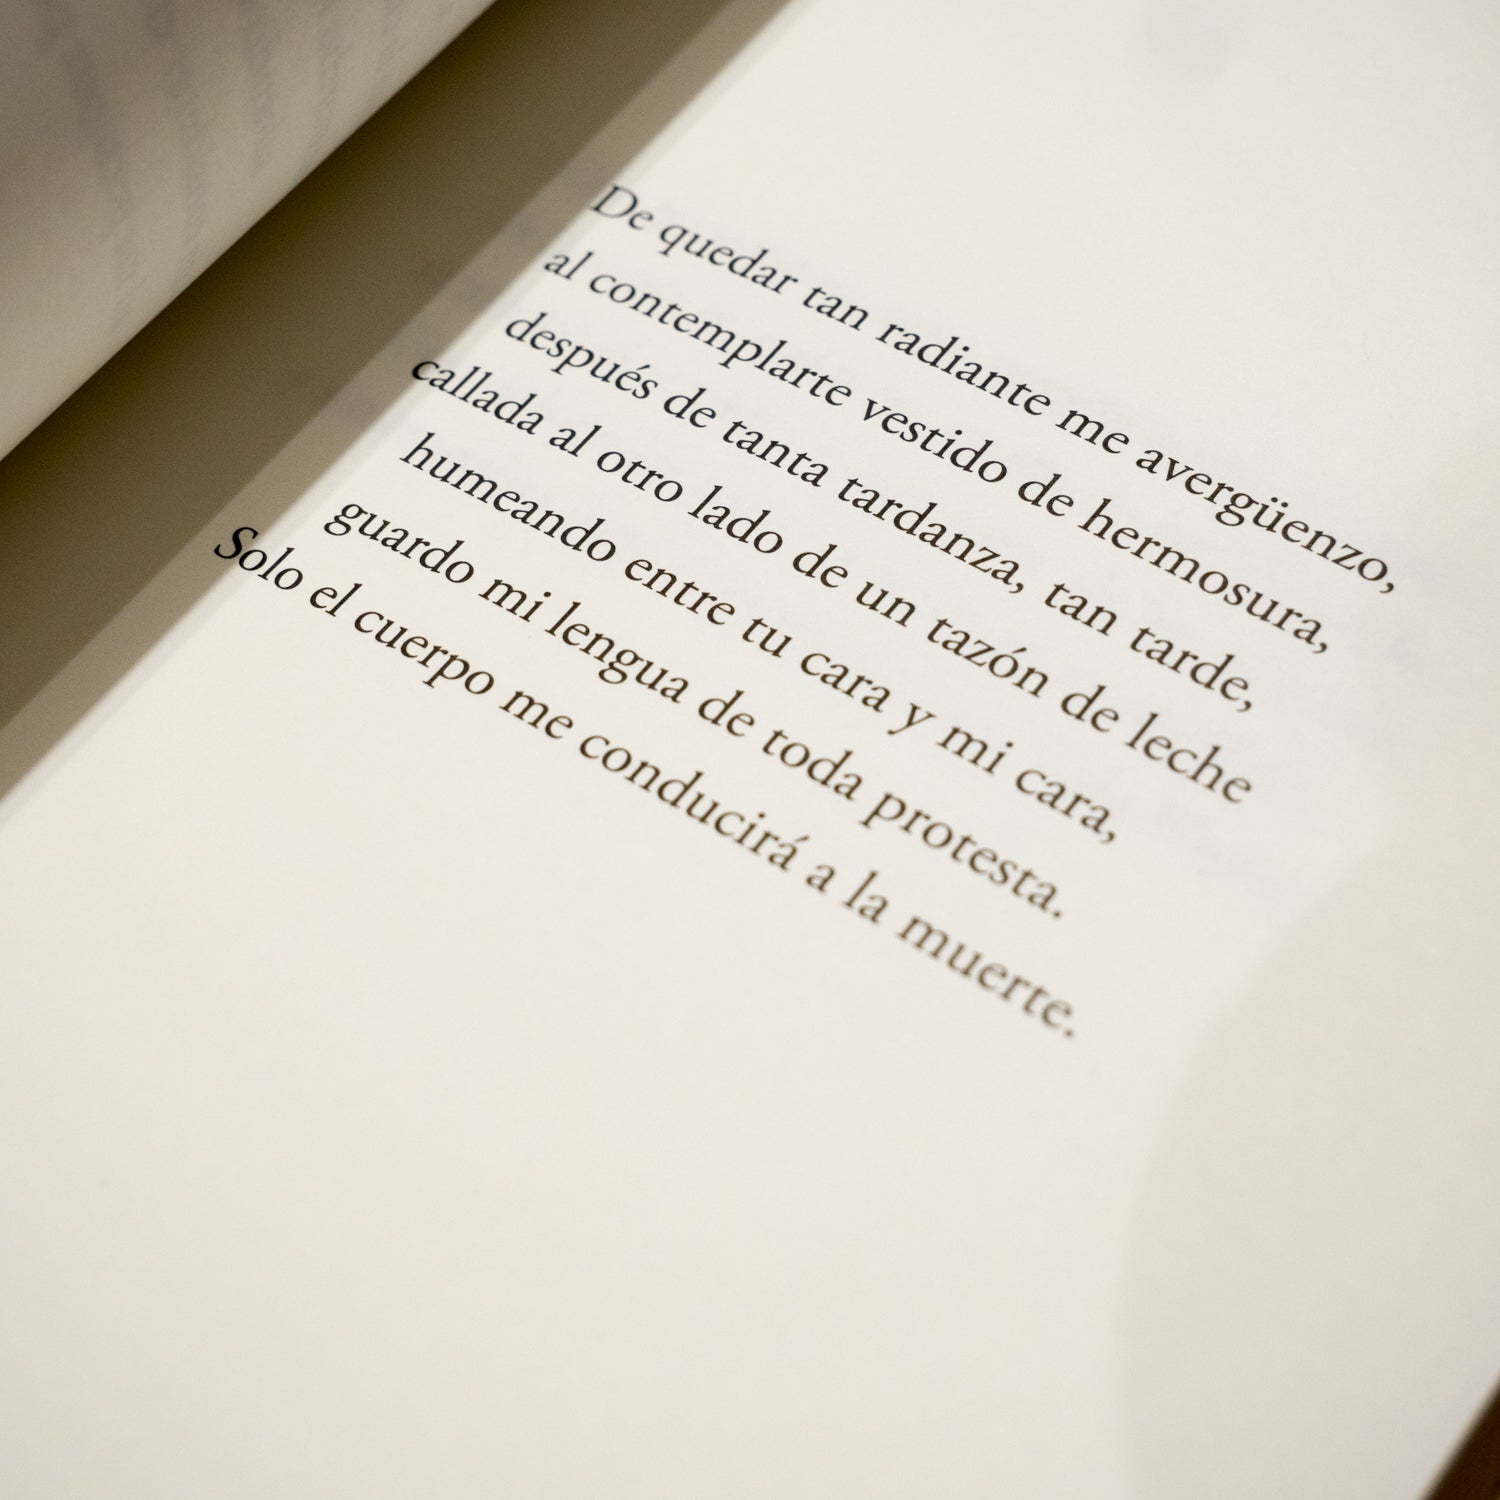 De quedar tan radiante me avergüenzo,
al contemplarte vestido de hermosura,
después de tanta tardanza, tan tarde,
callada al otro lado de un tazón de leche
humeando entre tu cara y mi cara,
guardo mi lengua de toda protesta.
Solo el cuerpo me conducirá a la muerte.